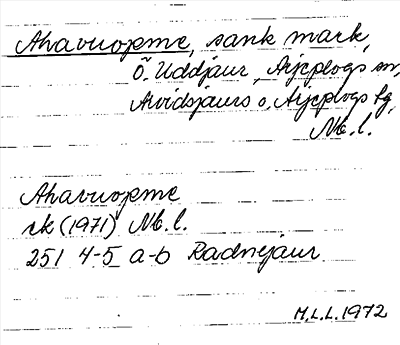 Ahavuopme, sank mark,
Ö. Uddjaur, Arjeplogs sn,
Arvidsjaurs o. Arjeplogs lg,
Nb. l.
Ahavuopme
rk (1971) Nb. l.
251 4-5 a-b Radnejaur
M.L.L. 1972